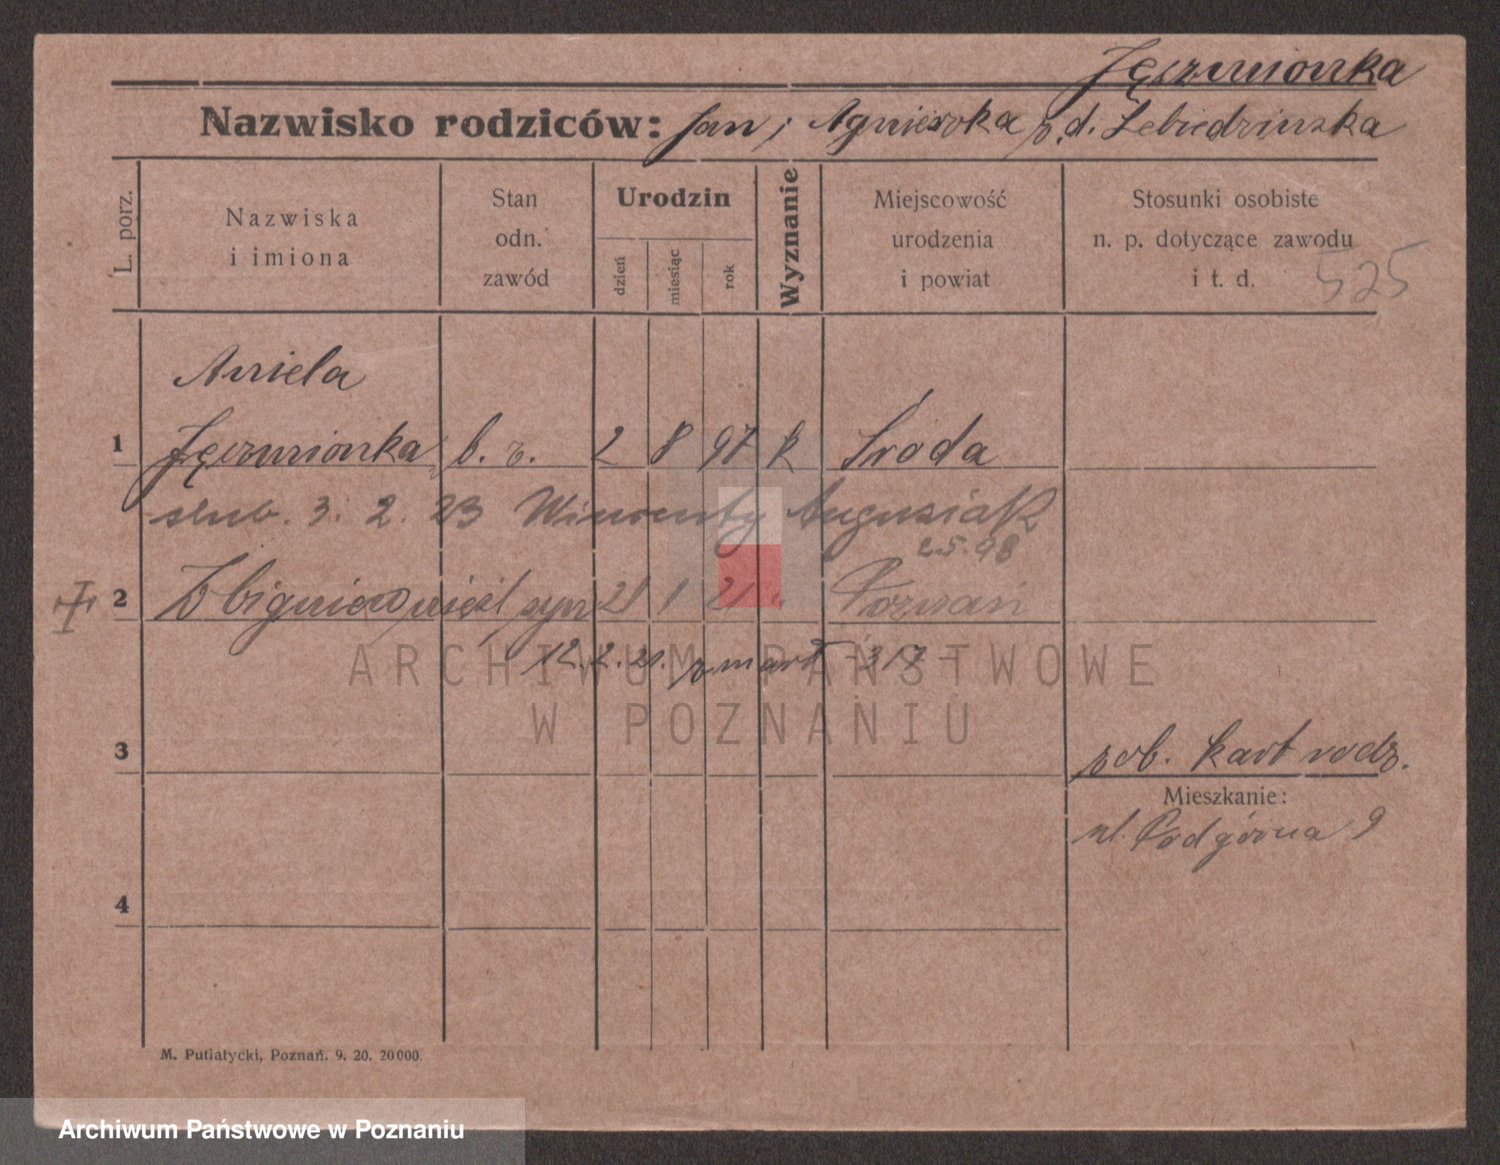 Jęczmionka
Nazwisko rodziców: Jan i Agnieszka z d. Lebiedzinska
L. porz.
Nazwiska
i imiona
Stan
odn.
zawód
Urodzin
dzień
miesiąc
rok
Wyznanie
Miejscowość
urodzenia
i powiat
Stosunki osobiste
n. p. dotyczące zawodu
i t. d.
525
Aniela
1 Jęczmionka b. z. 2 8 97 k Środa
ślub. 3. 2. 23 Wincenty Augusiak
2.5.98
2 Zbigniew nieśl syn 21 1 21 Poznań
12. 2. 21. zmarł 317
ARCHIWUM PAŃSTWOWE
W POZNANIU
3
zob. kart rodz.
Mieszkanie:
ul. Podgórna 9
4
M. Putiatycki, Poznań. 9. 20. 20000.
Archiwum Państwowe w Poznaniu